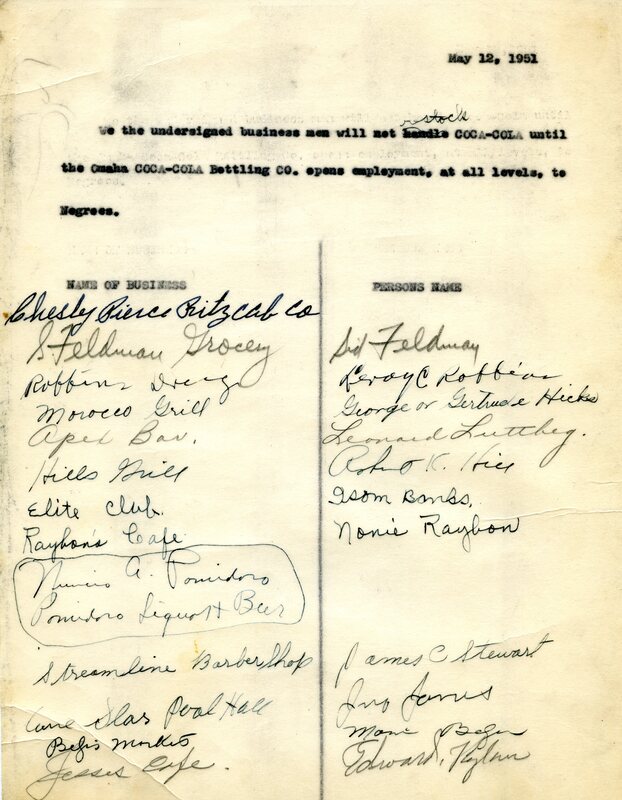 May 12, 1951
stock
We the undersigned business men will not handle COCA-COLA until
the Omaha COCA-COLA Bottling CO. opens employment, at all levels, to
Negroes.
NAME OF BUSINESS PERSONS NAME
Chesly Pierce Ritz Cab Co
S Feldman Grocery Sid Feldman
Robbins Drug Leroy C Robbins
Morocco Grill George or Gertrude Hicks
Apex Bar. Leonard Luttbeg.
Hills Grill Robert K. Hill
Elite Club. Isom Banks,
Raybon's Cafe Nonie Raybon
Nuncio A. Pomidoro
Pomidoro Liquor & Beer
Streamline Barber Shop James C Stewart
Star Pool Hall Jno Jones
Market
Jesses Cafe. Edward